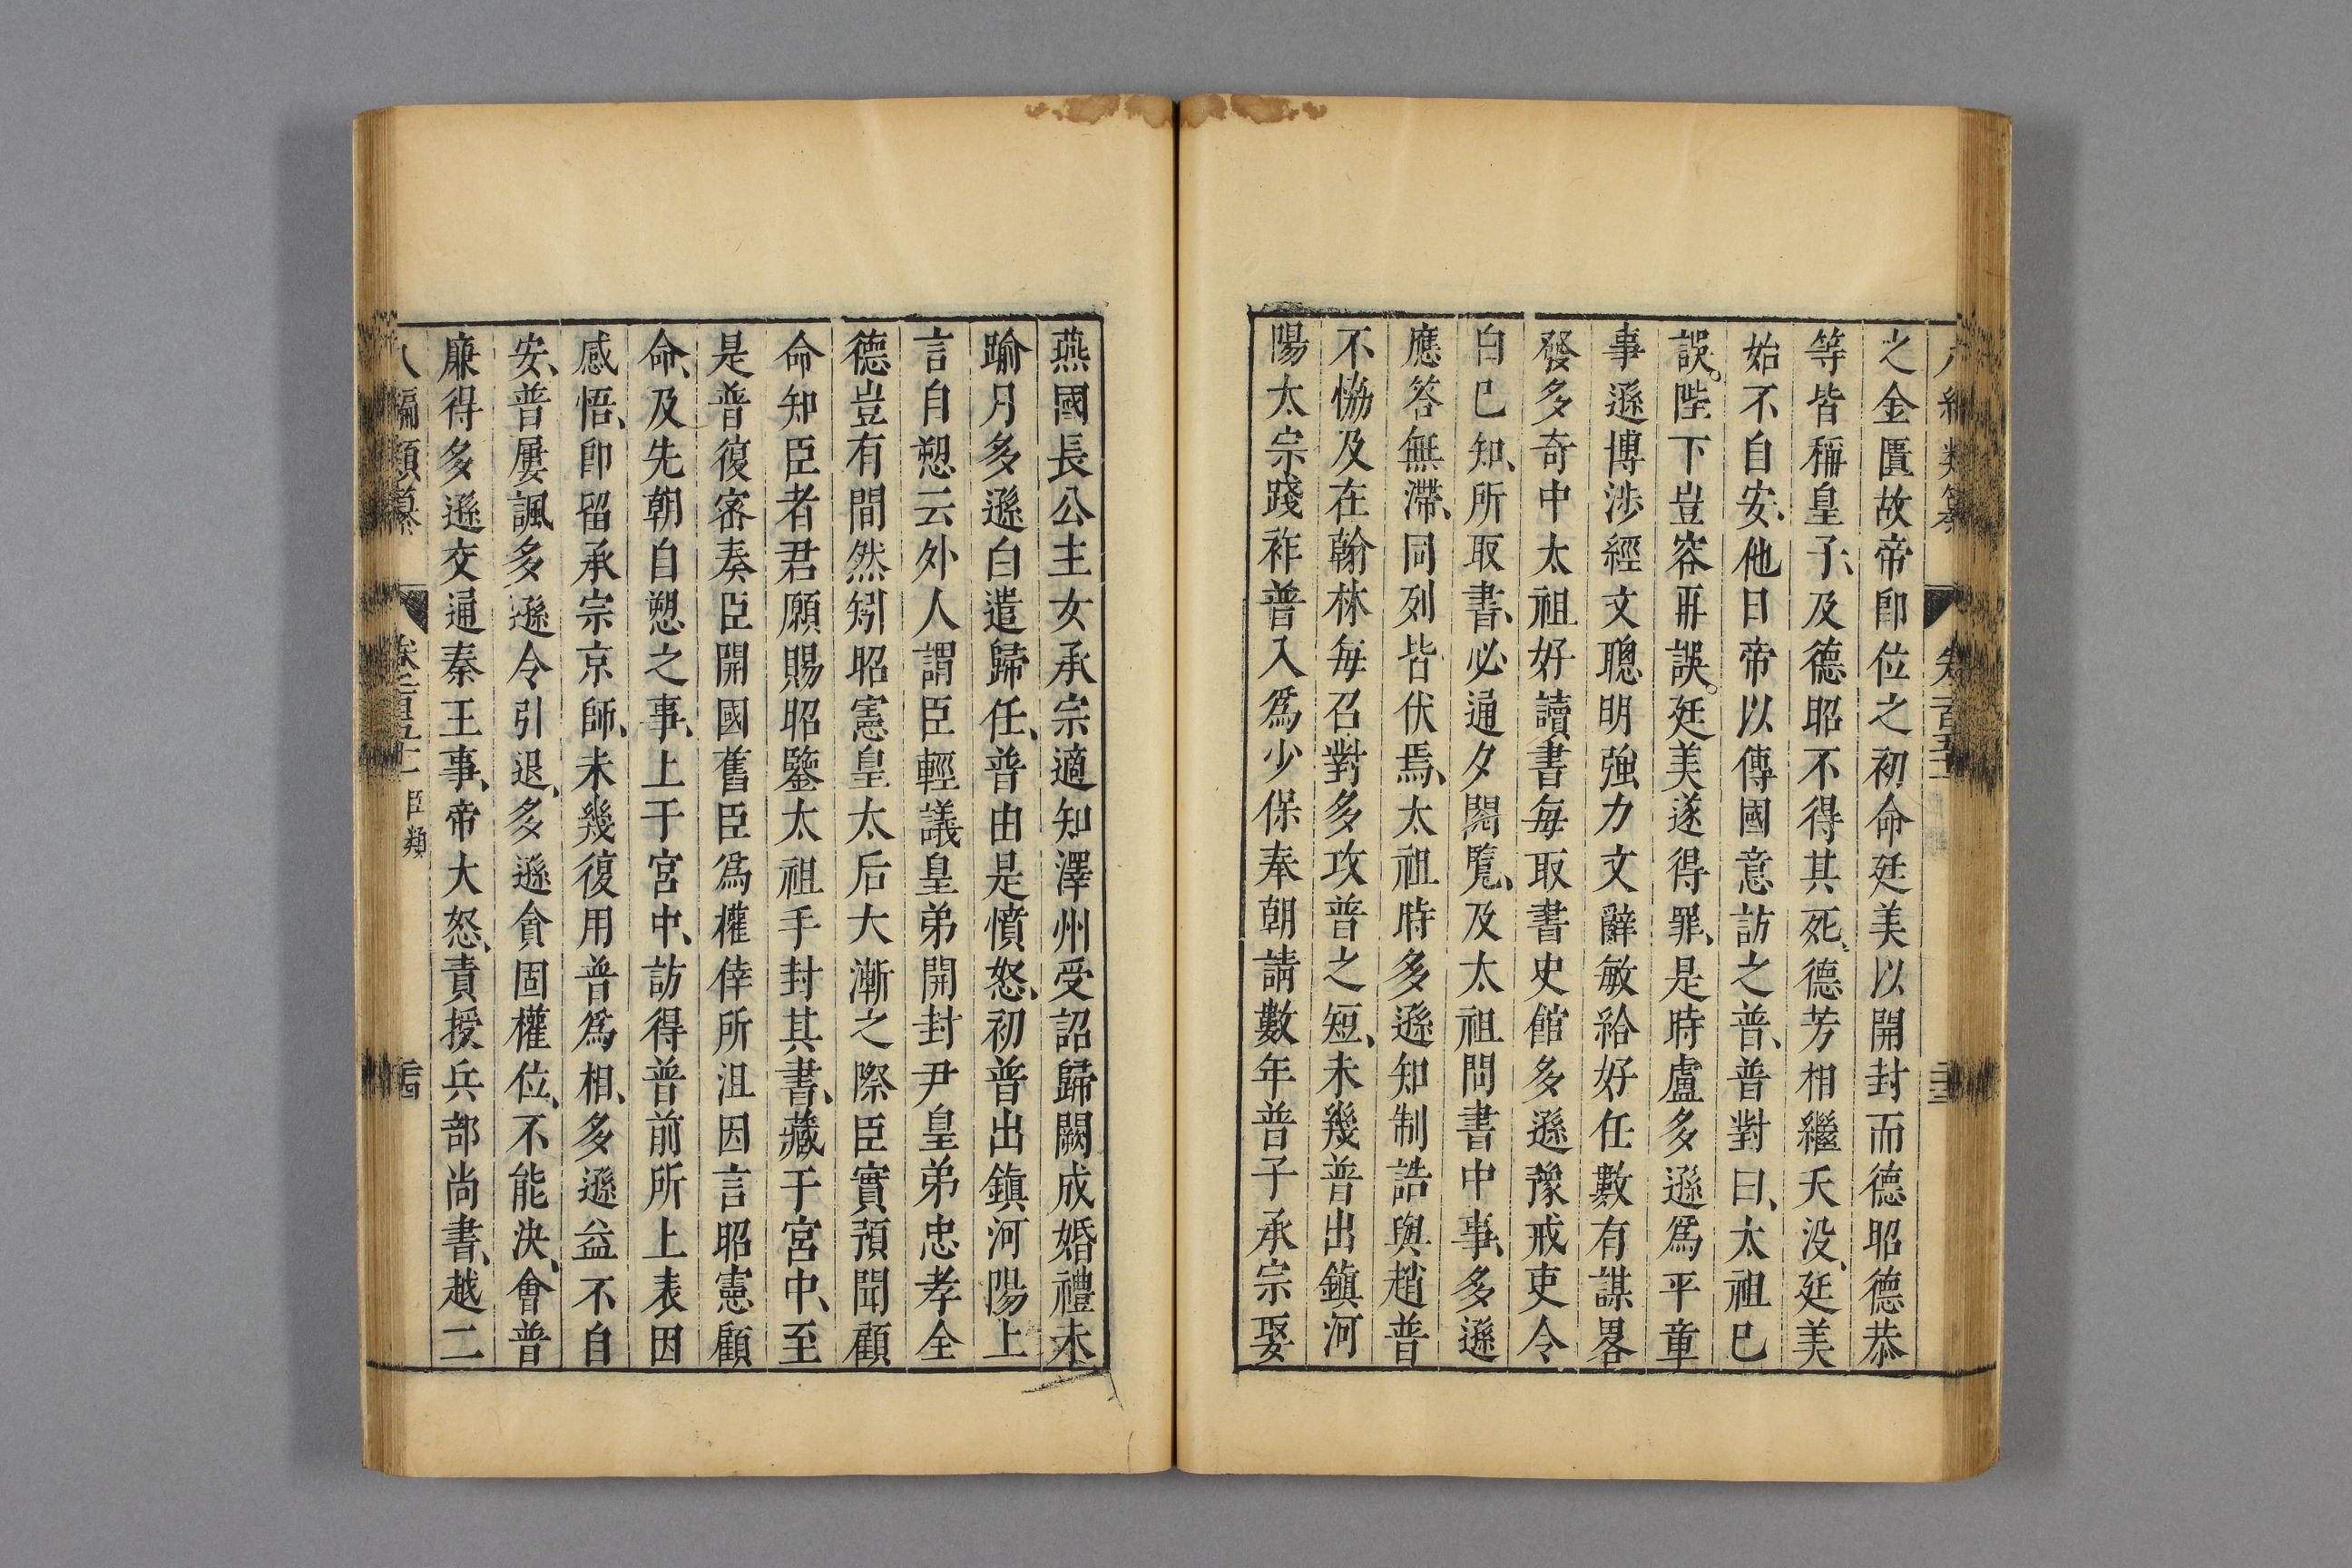 之金匱故帝卽位之初命廷美以開封而德昭德恭
等皆稱皇子、及德昭不得其死、德芳相繼夭没、廷美
始不自安、他日帝以傳國意訪之普、普對曰、太祖已
誤。陛下豈容再誤。廷美遂得罪、是時盧多遜爲平章
事遜博涉經文聰明強力文辭敏給好任數有謀畧
發多奇中太祖好讀書每取書史館多遜豫戒吏令
白已知、所取書、必通夕閱覽、及太祖問書中事、多遜
應答無滯、同列皆伏焉、太祖時多遜知制誥與趙普
不恊及在翰林每召對多攻普之短、未幾普出鎮河
陽太宗踐祚普入爲少保奉朝請數年普子承宗娶
燕國長公主女承宗適知澤州受詔歸闕成婚禮未
踰月多遜白遣歸任、普由是憤怒、初普出鎮河陽上
言自愬云外人謂臣輕議皇弟開封尹皇弟忠孝全
德豈有間然矧昭憲皇太后大漸之際臣實預聞顧
命知臣者君願賜昭鑒太祖手封其書、藏于宮中、至
是普復密奏臣開國舊臣爲權倖所沮因言昭憲顧
命、及先朝自愬之事、上于宮中、訪得普前所上表因
感悟、卽留承宗京師、未幾復用普爲相、多遜益不自
安、普屢諷多遜令引退、多遜貪固權位、不能決、會普
廉得多遜交通秦王事、帝大怒、責授兵部尚書、越二
編類纂 臣類